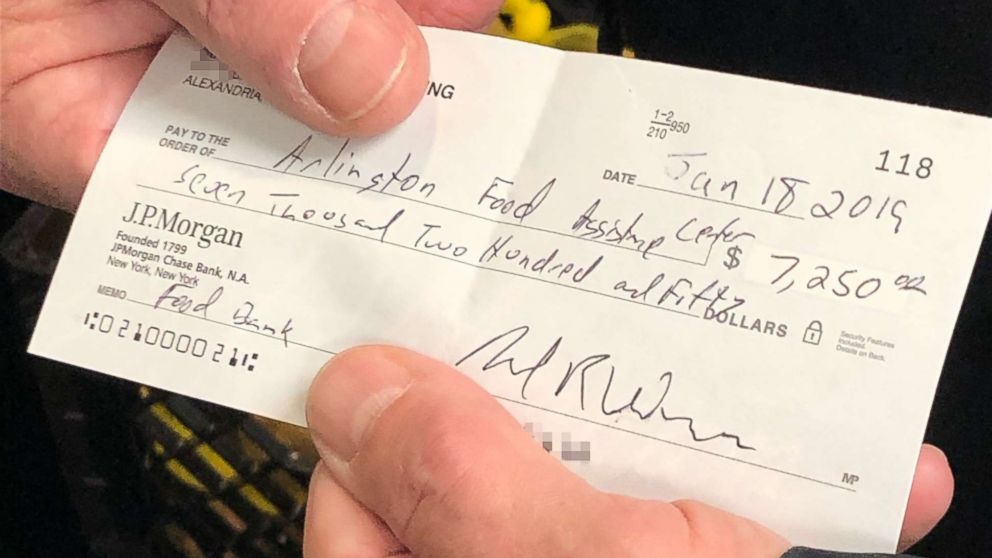 ALEXANDRIA
NG
1-2
210
950
118
DATE Jan 18 2019
PAY TO THE
ORDER OF Arlington Food Assistance Center $ 7,250.00
Seven Thousand Two Hundred and Fifty DOLLARS
Security Features
Included.
Details on Back.
J.P.Morgan
Founded 1799
JPMorgan Chase Bank, N.A.
New York, New York
MEMO Food Bank
MP
⑆021000021⑆